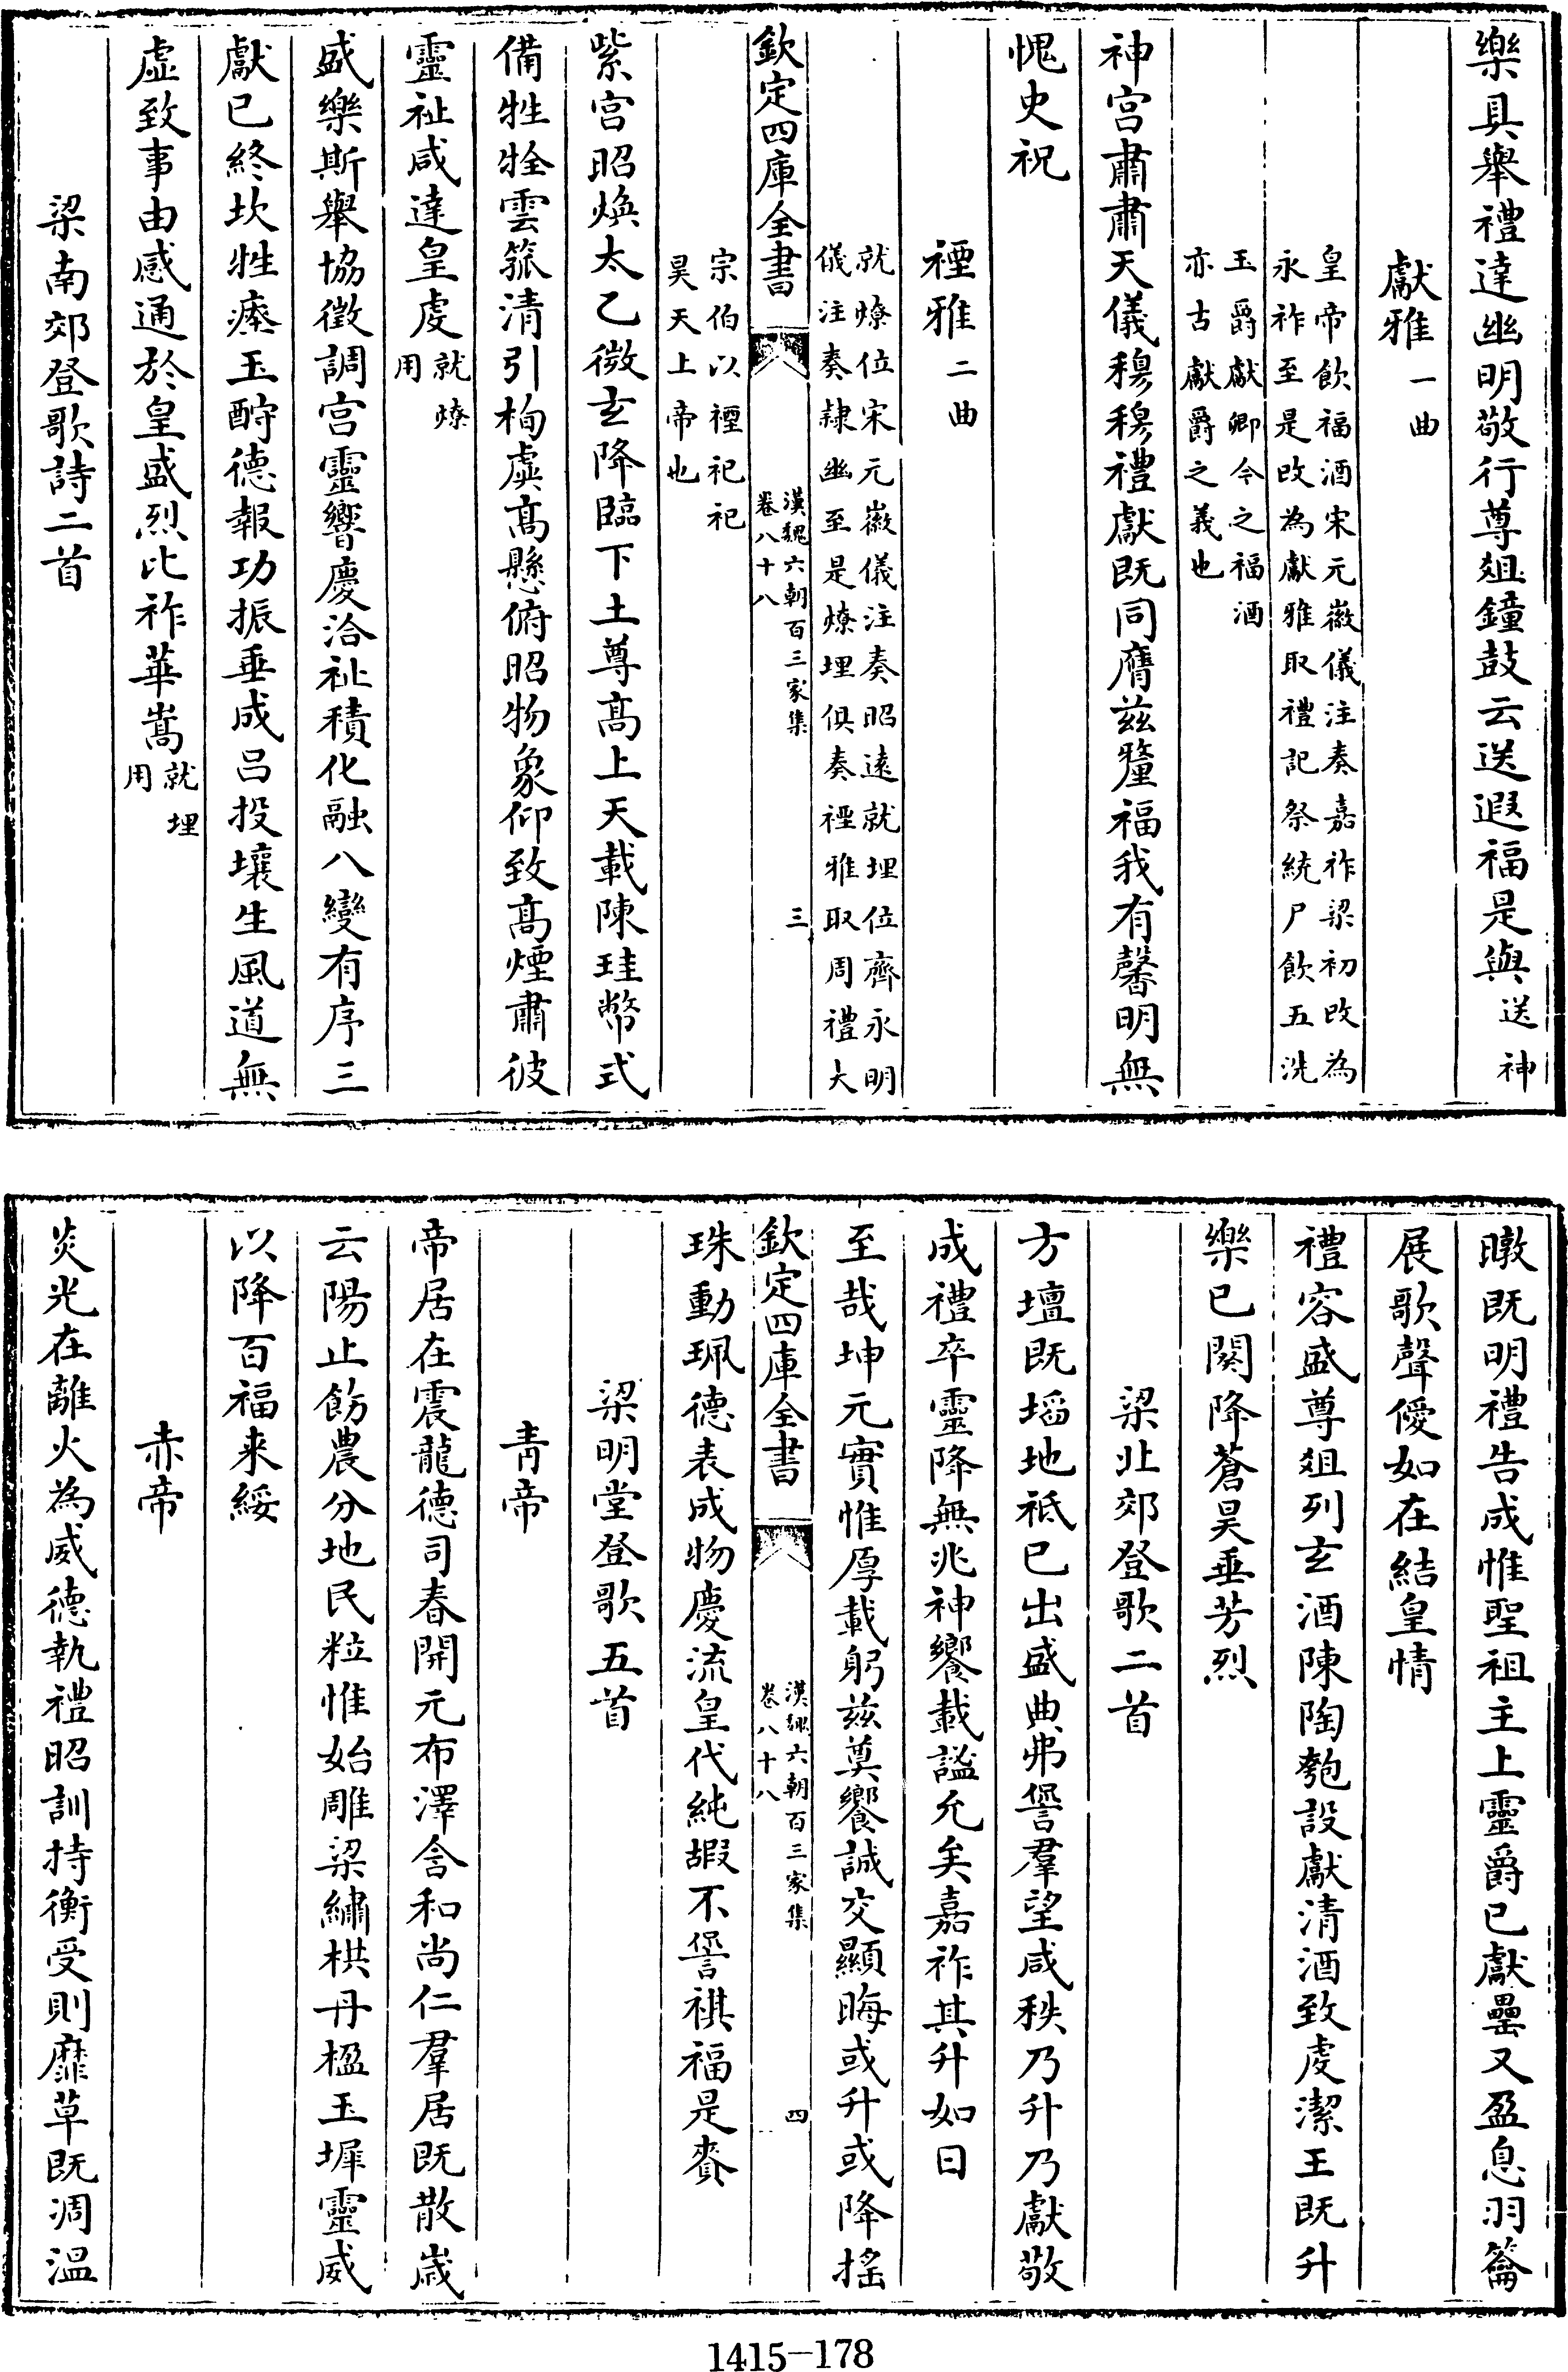 樂具舉禮達幽明敬行尊爼鐘鼓云送遐福是與送神
獻雅一曲
皇帝飲福酒宋元徽儀注奏嘉祚梁初改為
永祚至是改為獻雅取禮記祭統尸飲五洗
玉爵獻卿今之福酒
亦古獻爵之義也
神宫肅肅天儀穆穆禮獻既同膺兹釐福我有馨明無
愧史祝
禋雅二曲
就燎位宋元徽儀注奏昭遠就埋位齊永明
儀注奏隷幽至是燎埋俱奏禋雅取周禮大
欽定四庫全書
漢魏六朝百三家集
卷八十八
三
宗伯以禋祀祀
昊天上帝也
紫宫昭煥太乙微玄降臨下土尊髙上天載陳珪幣式
備牲牷雲孤清引栒虡髙懸俯昭物象仰致髙煙肅彼
靈祉咸達皇虔就燎
用
盛樂斯舉協徵調宫靈響慶洽祉積化融八變有序三
獻已終坎牲瘞玉酧德報功振垂成吕投壤生風道無
虚致事由感通於皇盛烈比祚華嵩就埋
用
梁南郊登歌詩二首
暾既明禮告成惟聖祖主上靈爵已獻罍又盈息羽籥
展歌聲僾如在結皇情
禮容盛尊爼列玄酒陳陶匏設獻清酒致虔潔王既升
樂已闋降蒼昊垂芳烈
梁北郊登歌二首
方壇既埳地祗已出盛典弗諐羣望咸秩乃升乃獻敬
成禮卒靈降無兆神饗載謐允矣嘉祚其升如日
至哉坤元實惟厚載躬兹奠饗誠交顯晦或升或降揺
欽定四庫全書
漢魏六朝百三家集
卷八十八
四
珠動珮德表成物慶流皇代純嘏不諐祺福是賚
梁明堂登歌五首
青帝
帝居在震龍德司春開元布澤含和尚仁羣居既散歲
云陽止飭農分地民粒惟始雕梁繡栱丹楹玉墀靈威
以降百福来綏
赤帝
炎光在離火為威德執禮昭訓持衡受則靡草既凋温
1415-178